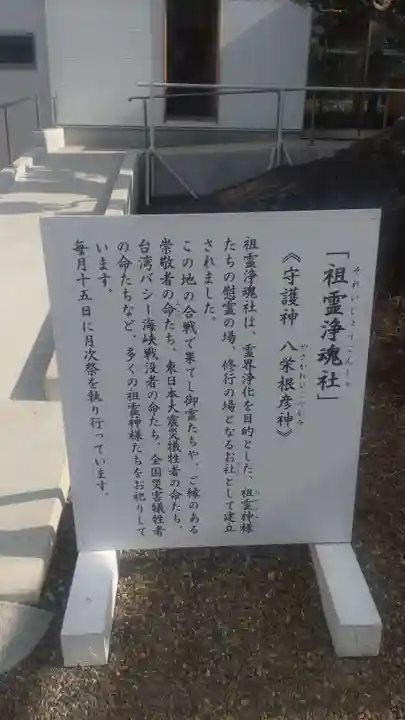 「祖霊浄魂社」
それいじょうこんしゃ
《守護神　八栄根彦神》
祖霊浄魂社は、霊界浄化を目的とした、祖霊神様
たちの慰霊の場、修行の場となるお社として建立
されました。
この地の合戦で果てし御霊たちや、ご縁のある
崇敬者の命たち、東日本大震災犠牲者の命たち、
台湾バシー海峡戦没者の命たち、全国災害犠牲者
の命たちなど、多くの祖霊神様たちをお祀りして
います。
毎月十五日に月次祭を執り行っています。